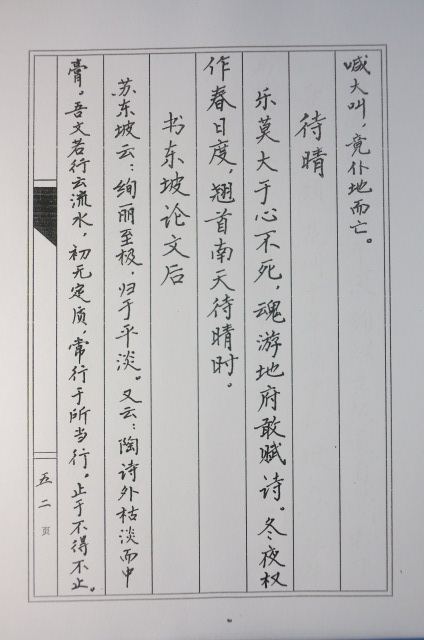 喊大叫，竟仆地而亡。
待晴
乐莫大于心不死，魂游地府敢赋诗。冬夜权
作春日度，翘首南天待晴时。
书东坡论文后
苏东坡云：绚丽至极，归于平淡。又云：陶诗外枯淡而中
膏。吾文若行云流水，初无定质，常行于所当行。止于不得不止。
五二页